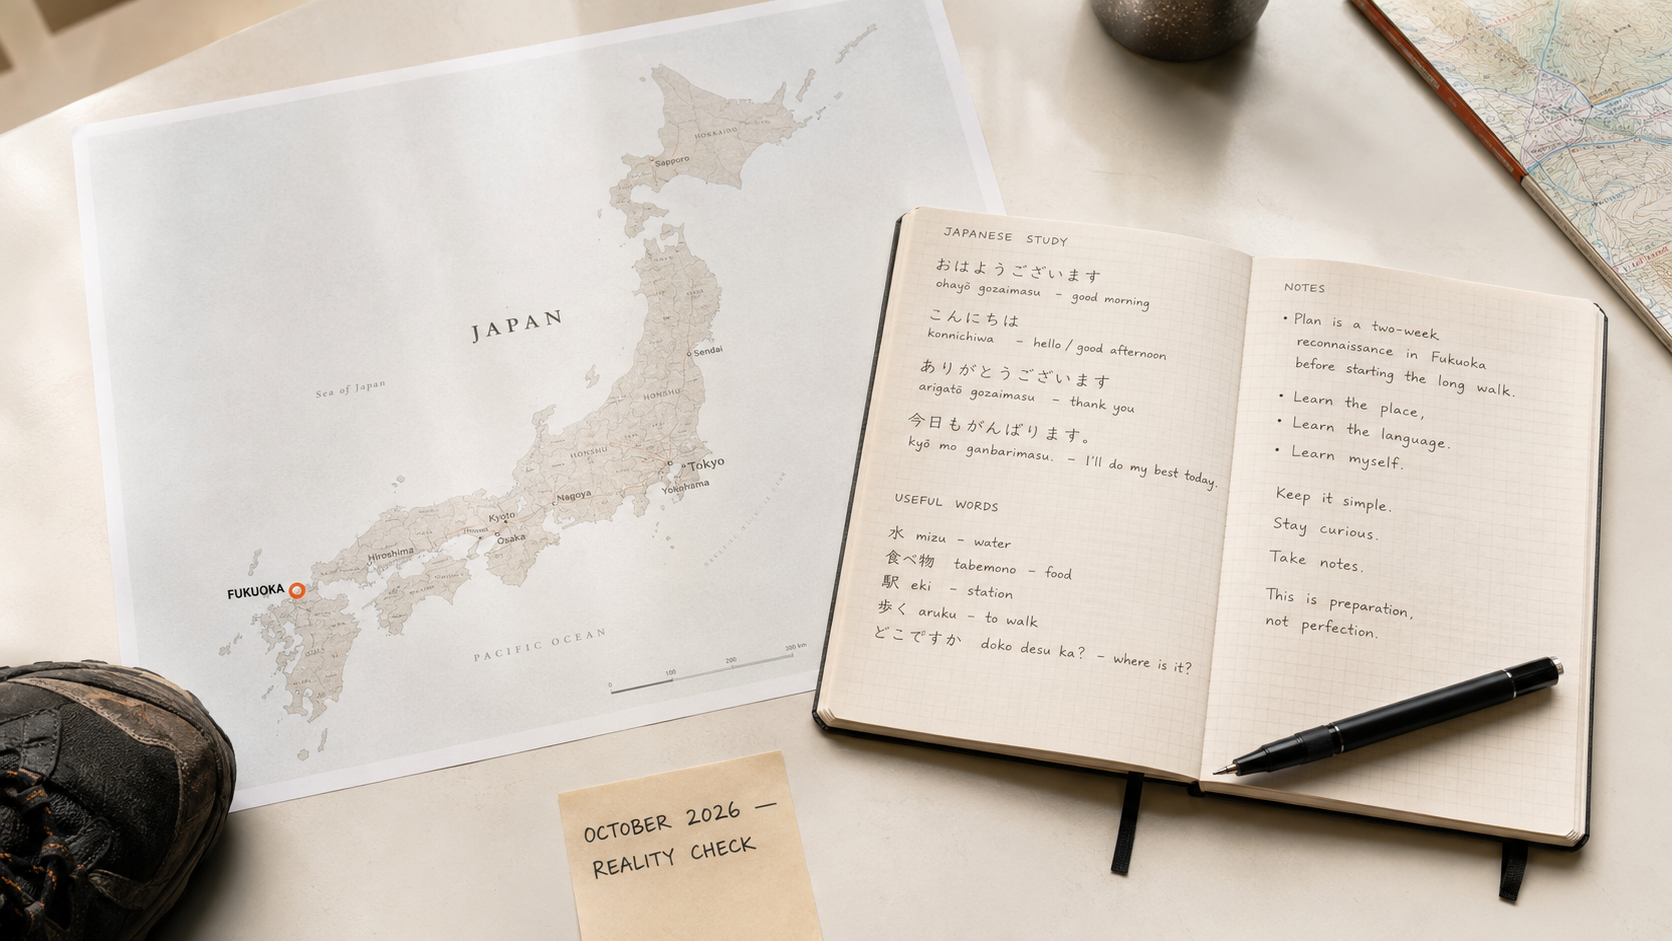 HOKKAIDO
Sapporo
JAPAN
Sendai
Sea of Japan
HONSHU
HONSHU
Tokyo
Yokohama
Nagoya
Kyoto
Osaka
Hiroshima
FUKUOKA
PACIFIC OCEAN
0 100 200 300 km
JAPANESE STUDY
おはようございます
ohayō gozaimasu – good morning
こんにちは
konnichiwa – hello / good afternoon
ありがとうございます
arigatō gozaimasu – thank you
今日もがんばります。
kyō mo ganbarimasu. – I'll do my best today.
USEFUL WORDS
水 mizu – water
食べ物 tabemono – food
駅 eki – station
歩く aruku – to walk
どこですか doko desu ka? – where is it?
NOTES
• Plan is a two-week
reconnaissance in Fukuoka
before starting the long walk.
• Learn the place,
• Learn the language.
• Learn myself.
Keep it simple.
Stay curious.
Take notes.
This is preparation,
not perfection.
OCTOBER 2026 —
REALITY CHECK